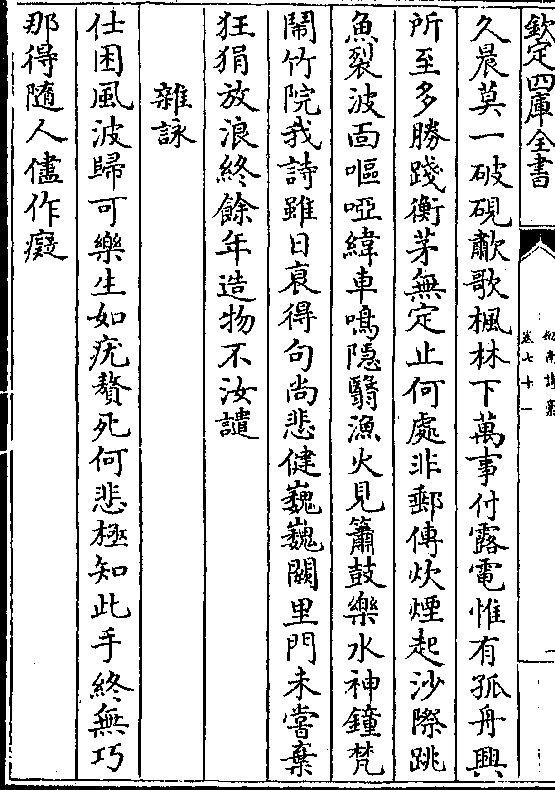 欽定四庫全書
劍南詩藁
卷七十一
久晨莫一破硯歗歌楓林下萬事付露電惟有孤舟興
所至多勝踐衡茅無定止何處非郵傳炊煙起沙際跳
魚裂波面嘔啞緯車鳴隐翳漁火見簫鼓樂水神鐘梵
鬧竹院我詩雖日衰得句尚悲健巍巍闕里門未嘗棄
狂狷放浪終餘年造物不汝譴
雜詠
仕困風波歸可樂生如疣贅死何悲極知此手終無巧
那得隨人儘作癡